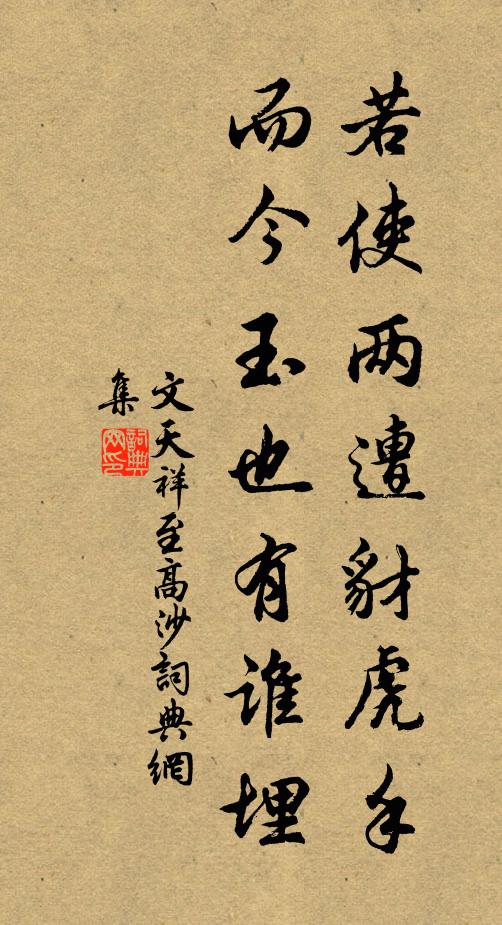 若使两遭豺虎手
而今玉也有谁埋
文天祥至高沙詞典網
集
詞典網印